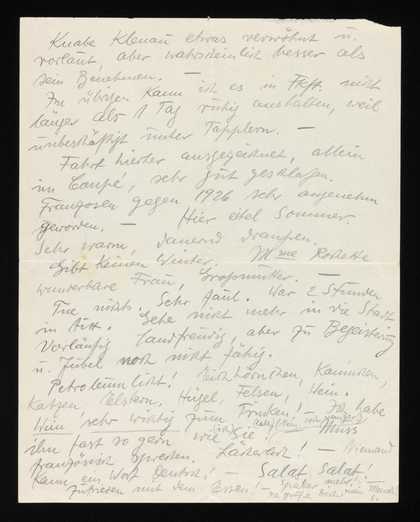 Knabe Klenau etwas verwöhnt u.
vorlaut, aber wahrscheinlich besser als
sein Benehmen. —
Im übrigen kann ich es in Frkft. nicht
länger als 1 Tag ruhig aushalten, weil
unbeschäftigt unter Tapplern. —
Fahrt hierher ausgezeichnet, allein
im Coupé, sehr gut geschlafen.
Franzosen gegen 1926 sehr angenehm
geworden. — Hier edel Sommer.
Sehr warm, dauernd draußen.
Gibt keinen Winter. Mme
wunderbare Frau, Grossmutter. —
Tue nichts. Sehr faul. War 2 Stunden
in Gehe nicht mehr in die Stadt
Vorläufig landfreudig, aber zu Begeisterung
u. Jubel noch nicht fähig.
Petroleumlicht! Eichhörnchen, Kaninchen,
Katzen, Elstern. Hügel, Felsen, Wein.
Wein sehr wichtig zum Trinken! — Ich habe
ihn fast so gern wie Sie. Muss
französisch sprechen. Lächerlich! — Niemand
kann ein Wort Deutsch! — Salat, Salat! —
Zufrieden mit dem Essen! —